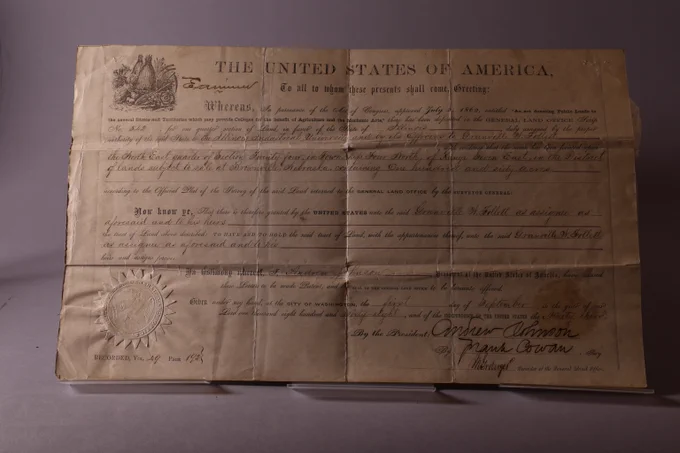 THE UNITED STATES OF AMERICA,
To all to whom these presents shall come, Greeting:
Whereas, In pursuance of the Act of Congress, approved July 2, 1862, entitled "An Act donating Public Lands to
the several States and Territories which may provide Colleges for the benefit of Agriculture and the Mechanic Arts," there has been deposited in the GENERAL LAND OFFICE, Scrip
No. for one quarter section of Land, in favor of the State of Illinois duly assigned by the proper
authority of the said State to
the South East quarter of Section Twenty four in Township Four North of Range Seven East in the District
of lands subject to sale at Brownville Nebraska containing One hundred and sixty acres
according to the Official Plat of the Survey of the said Land returned to the GENERAL LAND OFFICE by the SURVEYOR GENERAL:
Now know ye, That there is therefore granted by the UNITED STATES unto the said Granville H. Follett as assignee as
aforesaid and to his heirs
the tract of Land above described: TO HAVE AND TO HOLD the said tract of Land, with the appurtenances thereof, unto the said Granville H. Follett
as assignee as aforesaid and to his
heirs and assigns forever.
In testimony whereof, I, Andrew Johnson President of the United States of America, have caused
these Letters to be made Patent, and the Seal of the GENERAL LAND OFFICE to be hereunto affixed.
GIVEN under my hand, at the CITY OF WASHINGTON, the first day of September in the year of our
Lord one thousand eight hundred and sixty eight, and of the INDEPENDENCE OF THE UNITED STATES the ninety third
By the President: Andrew Johnson
By Frank Cowan Secy
Recorder of the General Land Office.
RECORDED, Vol. 29 Page